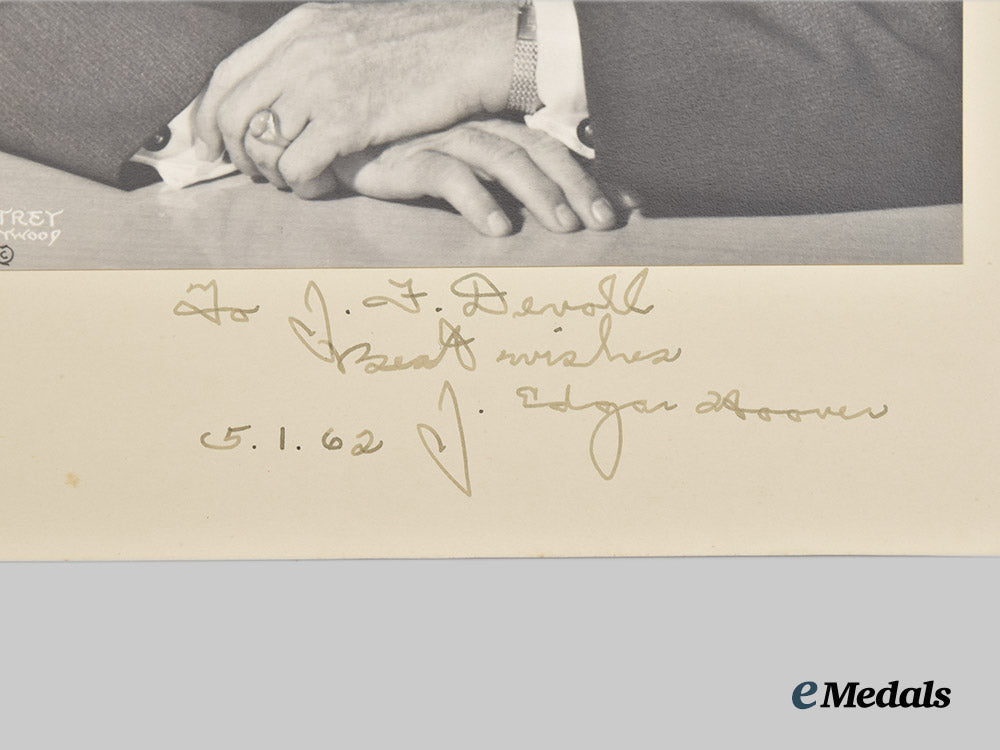 TREY
TWOOD
©
To J. F. Devoll
Best wishes
J. Edgar Hoover
5.1.62
eMedals